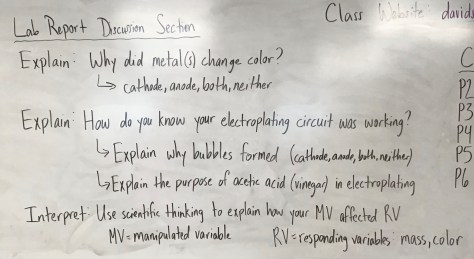 Lab Report Discussion Section
Class Website davids
Explain: Why did metal(s) change color?
↳ cathode, anode, both, neither
Explain: How do you know your electroplating circuit was working?
↳ Explain why bubbles formed (cathode, anode, both, neither)
↳ Explain the purpose of acetic acid (vinegar) in electroplating
Interpret: Use scientific thinking to explain how your MV affected RV
MV = manipulated variable RV = responding variables: mass, color
C
P2
P3
P4
P5
P6